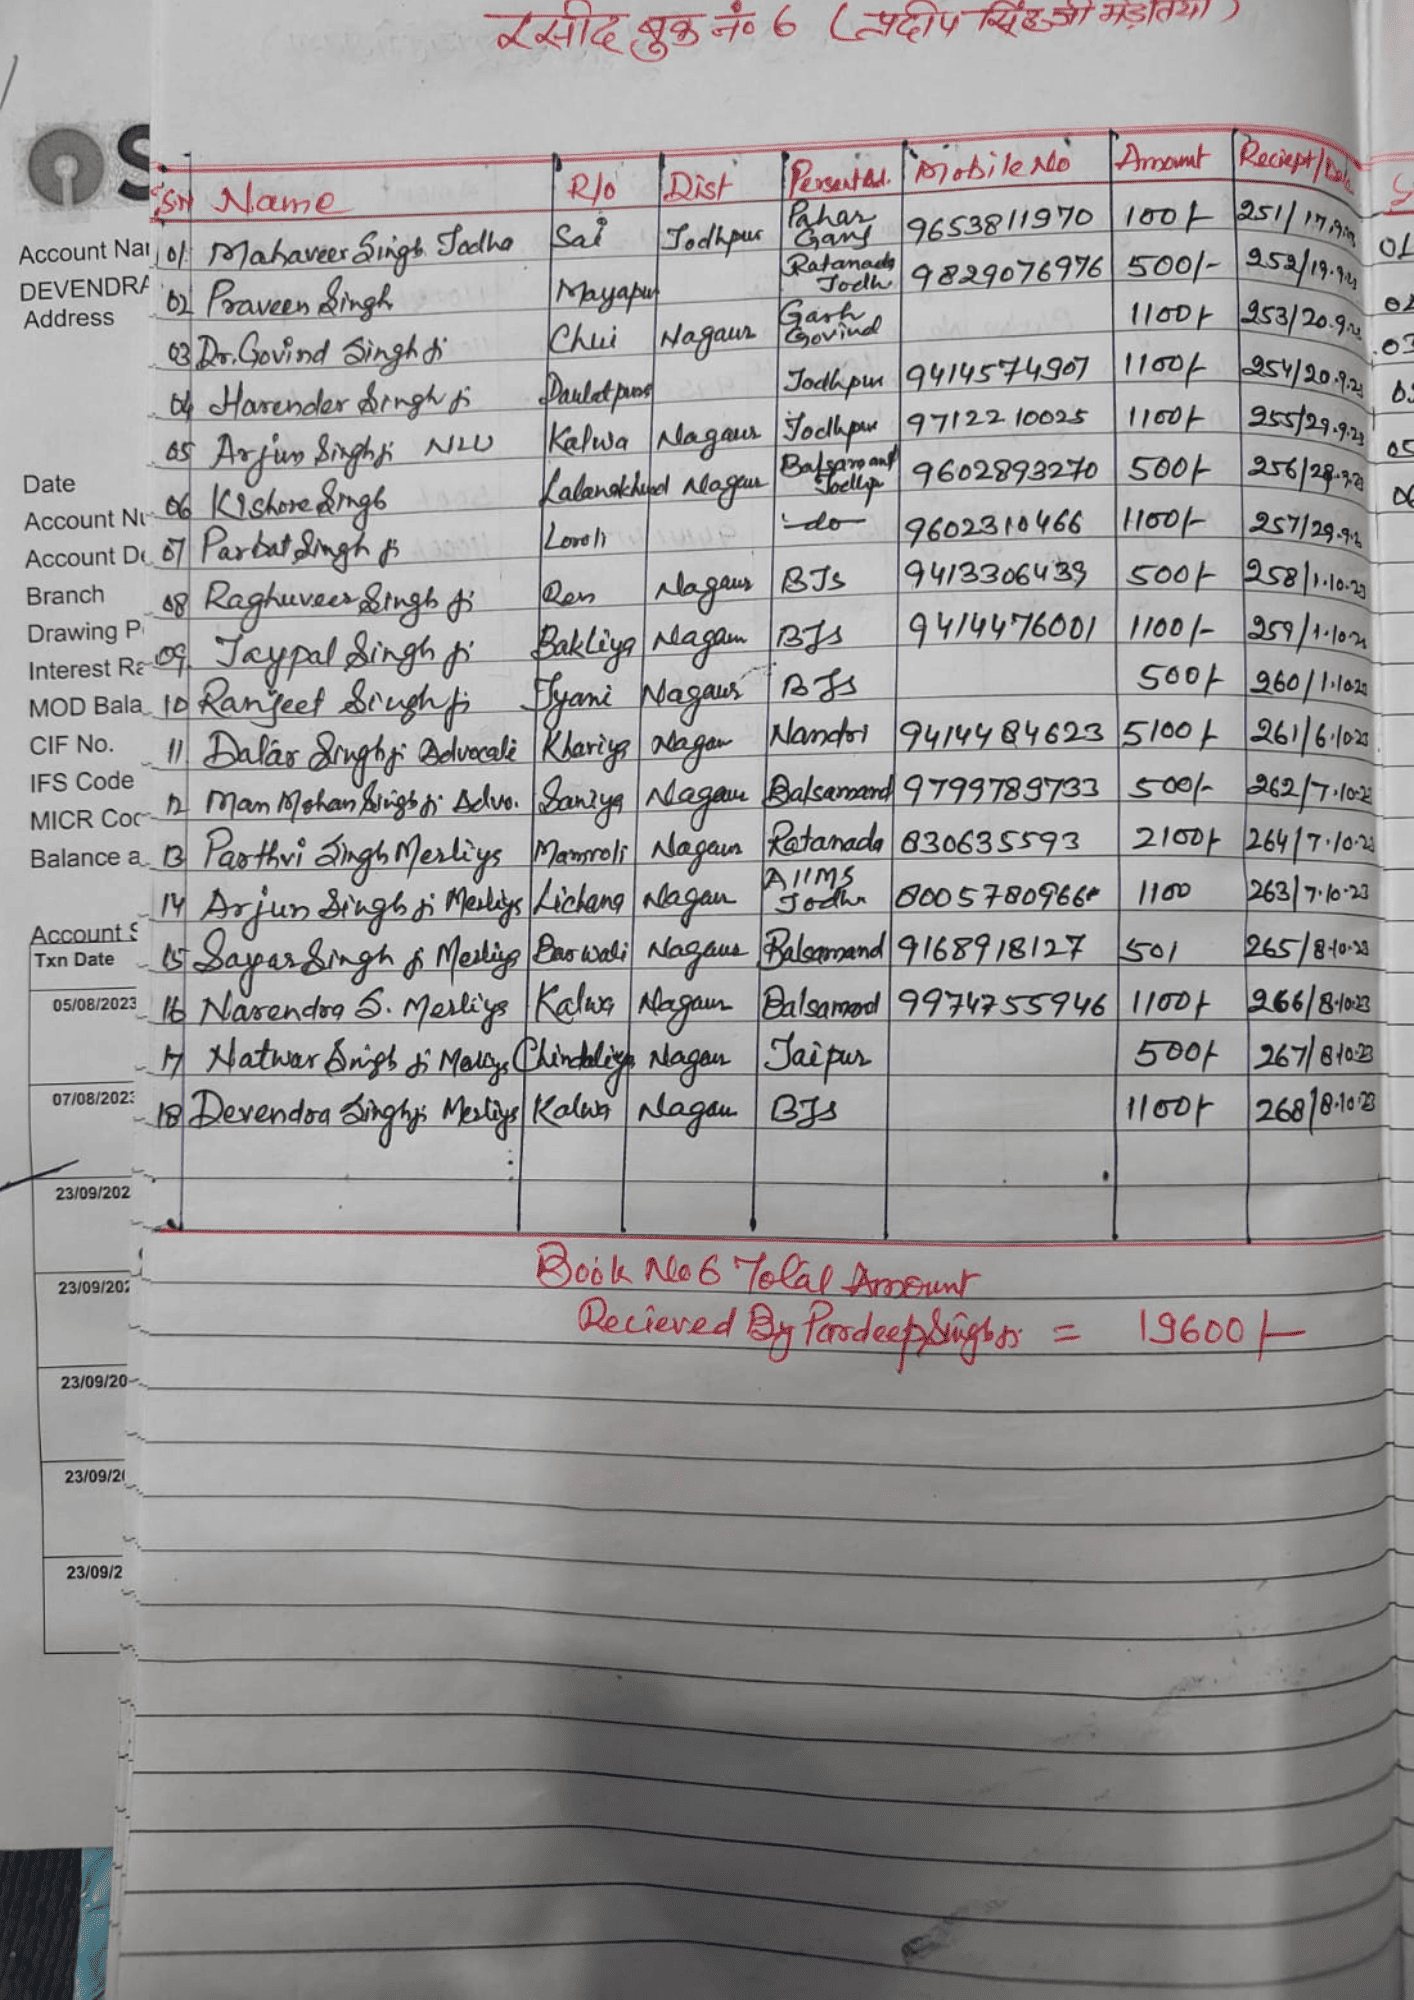 रसीद बुक नं० 6 (प्रदीप सिंह जी मेड़तिया)
SN Name R/o Dist Persent Ad. Mobile No Amount Reciept/Date
01 Mahaveer Singh Jodha Sai Jodhpur Pahar Ganj 9653811970 1100/- 251/17.9.23
02 Praveen Singh Mayapur Ratanada Jodh 9829076976 500/- 252/19.9.23
03 Dr. Govind Singh Ji Chui Nagaur Garh Govind 1100/- 253/20.9.23
04 Harender Singh Ji Daulatpura Jodhpur 9414574907 1100/- 254/20.9.23
05 Arjun Singh Ji NLU Kalwa Nagaur Jodhpur 9712210025 1100/- 255/29.9.23
06 Kishore Singh Lalanakhurd Nagaur Balsamand Jodhpr 9602893270 500/- 256/28.9.23
07 Parbat Singh Ji Loroli -do- 9602310466 1100/- 257/29.9.23
08 Raghuveer Singh Ji Ren Nagaur BJS 9413306439 500/- 258/1.10.23
09 Jaypal Singh Ji Bakliya Nagaur BJS 9414476001 1100/- 259/1.10.23
10 Ranjeet Singh Ji Jyani Nagaur BJS 500/- 260/1.10.23
11 Dalar Singh Ji Advocate Khariya Nagaur Nandri 9414484623 5100/- 261/6.10.23
12 Man Mohan Singh Ji Advo. Saniya Nagaur Balsamand 9799789733 500/- 262/7.10.23
13 Parthvi Singh Mertiya Mamroli Nagaur Ratanada 830635593 2100/- 264/7.10.23
14 Arjun Singh Ji Mertiya Lichana Nagaur AIIMS Jodhr 8005780966 1100 263/7.10.23
15 Sayar Singh Ji Mertiya Barwali Nagaur Balsamand 9168918127 501 265/8.10.23
16 Narendra S. Mertiya Kalwa Nagaur Balsamand 9974755946 1100/- 266/8.10.23
17 Natwar Singh Ji Mertiya Chindaliya Nagaur Jaipur 500/- 267/8.10.23
18 Devendra Singh Ji Mertiya Kalwa Nagaur BJS 1100/- 268/8.10.23
Book No 6 Total Amount
Recieved By Pardeep Singh Ji = 19600/-
S
Account Nar
DEVENDRA
Address
Date
Account Nu
Account De
Branch
Drawing P
Interest Ra
MOD Bala
CIF No.
IFS Code
MICR Coc
Balance a
Account S
Txn Date
05/08/2023
07/08/2023
23/09/202
23/09/202
23/09/20
23/09/20
23/09/2
01
02
03
05
06